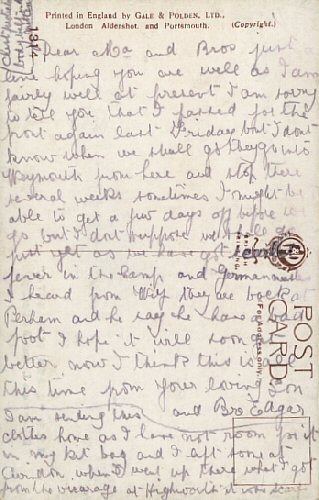 1914
Printed in England by GALE & POLDEN, LTD.,
London Aldershot, and Portsmouth. (Copyright.)
Dear Ma and Bros just a
line hoping you are well as I am
fairly well at present I am sorry
to tell you that I passed for the
front again last Friday but I dont
know when we shall go they go into
Weymouth from here and stop there
several weeks sometimes I might be
able to get a few days off before we
go but I dont suppose we shall go
just yet as we have got
fever in the camp and German measles
I heard from they are back at
Perham and he says he have a bad
foot I hope it will soon get
better now I think this is all
this time from your loving Son
and Bro Edgar
I am sending this
clothes home as I have not room for it
in my kit bag and I left some at
when I went up there what I got
from the vicarage at Highworth it was
POST
CARD.
For Address only.